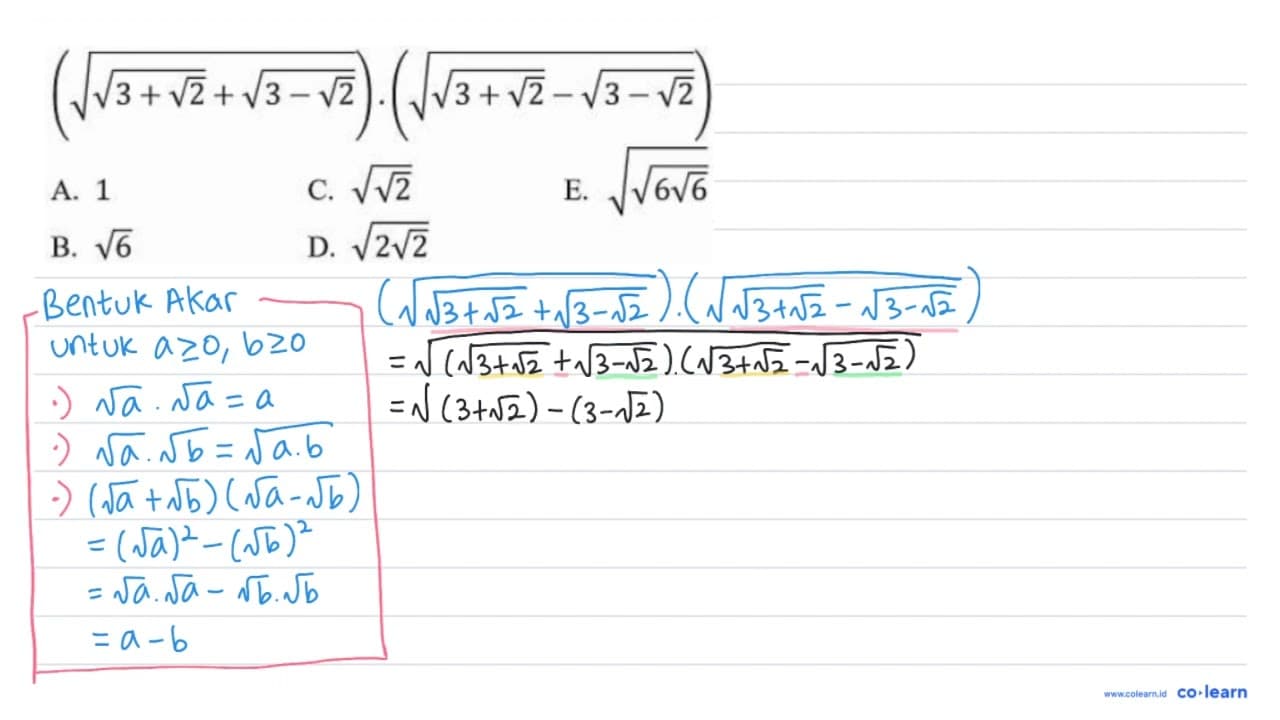 (√(√(3 + √2) + √(3 − √2))) . (√(√(3 + √2) − √(3 − √2)))
A. 1 C. √√2 E. √√(6√6)
B. √6 D. √(2√2)
Bentuk Akar
untuk a ≥ 0, b ≥ 0
·) √a . √a = a
·) √a . √b = √(a.b)
·) (√a + √b)(√a − √b)
= (√a)² − (√b)²
= √a . √a − √b . √b
= a − b
(√(√(3+√2) + √(3−√2))) . (√(√(3+√2) − √(3−√2)))
= √((√(3+√2) + √(3−√2)) . (√(3+√2) − √(3−√2)))
= √ (3+√2) − (3−√2)
www.colearn.id co·learn